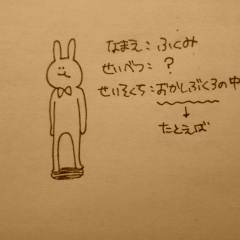 なまえ：ふくみ
せいべつ：？
せいそくち：おかしぶくろの中
↓
たとえば